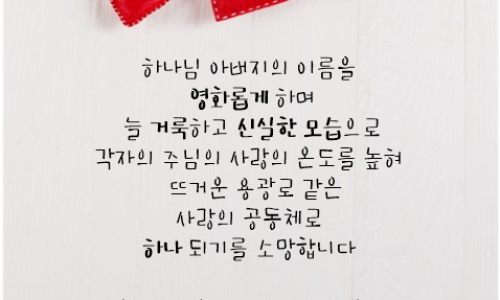 하나님 아버지의 이름을
영화롭게 하며
늘 거룩하고 신실한 모습으로
각자의 주님의 사랑의 온도를 높혀
뜨거운 용광로 같은
사랑의 공동체로
하나 되기를 소망합니다